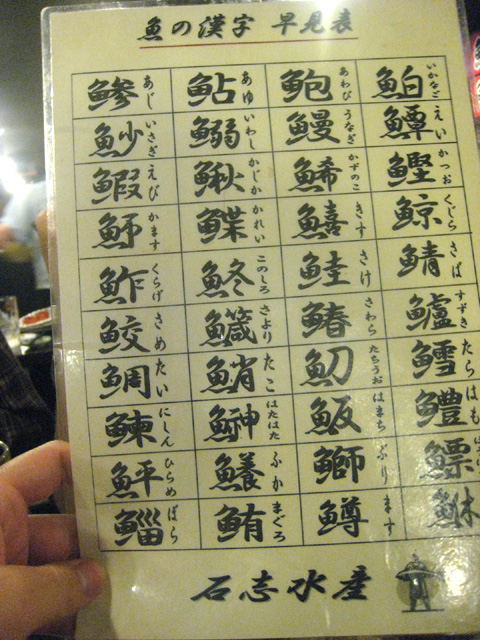 魚の漢字 早見表
鯵 あじ 鮎 あゆ 鮑 あわび 鮊 いかなご
魦 いさざ 鰯 いわし 鰻 うなぎ 鱏 えい
鰕 えび 鰍 かじか 鯑 かずのこ 鰹 かつお
魳 かます 鰈 かれい 鱚 きす 鯨 くじら
鮓 くらげ 鮗 このしろ 鮭 さけ 鯖 さば
鮫 さめ 鱵 さより 鰆 さわら 鱸 すずき
鯛 たい 鮹 たこ 魛 たちうお 鱈 たら
鰊 にしん 鰰 はたはた 魬 はまち 鱧 はも
鮃 ひらめ 鱶 ふか 鰤 ぶり 鰾
鯔 ぼら 鮪 まぐろ 鱒 ます
石志水産